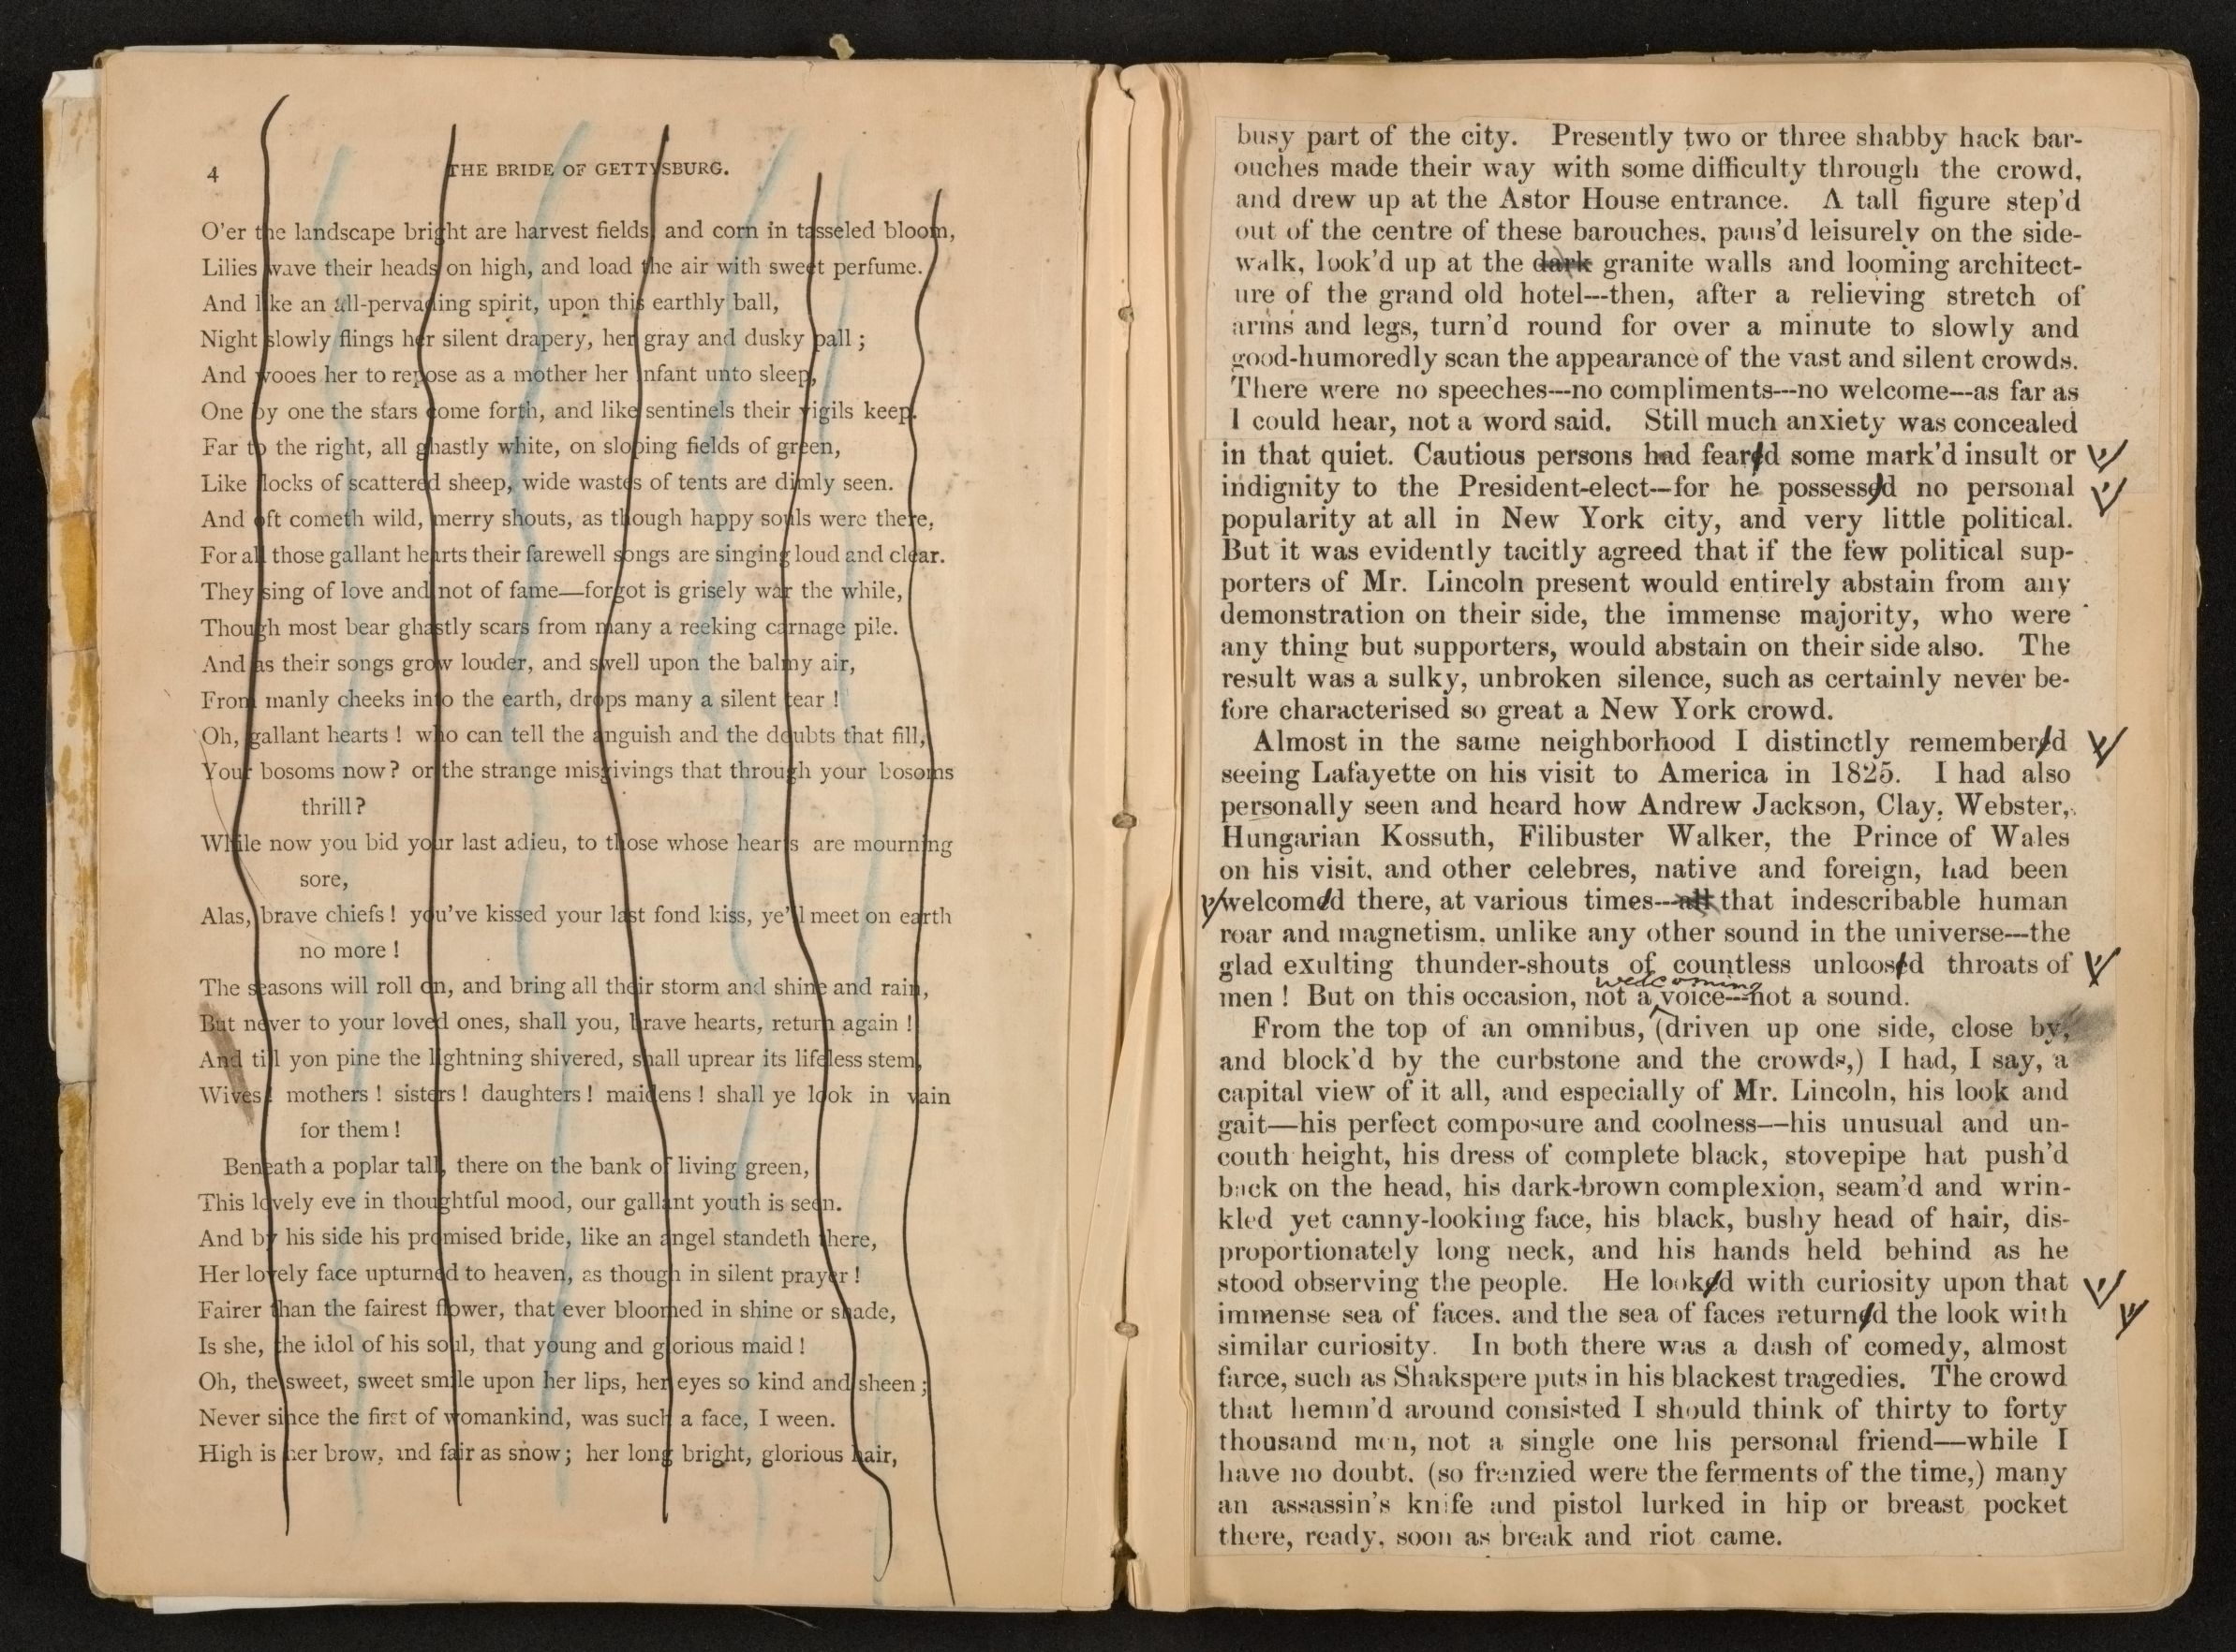 4
THE BRIDE OF GETTYSBURG.
O'er the landscape bright are harvest fields, and corn in tasseled bloom,
Lilies wave their heads on high, and load the air with sweet perfume.
And like an all-pervading spirit, upon this earthly ball,
Night slowly flings her silent drapery, her gray and dusky pall ;
And wooes her to repose as a mother her infant unto sleep,
One by one the stars come forth, and like sentinels their vigils keep.
Far to the right, all ghastly white, on sloping fields of green,
Like flocks of scattered sheep, wide wastes of tents are dimly seen.
And oft cometh wild, merry shouts, as though happy souls were there,
For all those gallant hearts their farewell songs are singing loud and clear.
They sing of love and not of fame—forgot is grisely war the while,
Though most bear ghastly scars from many a reeking carnage pile.
And as their songs grow louder, and swell upon the balmy air,
From manly cheeks into the earth, drops many a silent tear !
Oh, gallant hearts ! who can tell the anguish and the doubts that fill,
Your bosoms now? or the strange misgivings that through your bosoms
thrill?
While now you bid your last adieu, to those whose hearts are mourning
sore,
Alas, brave chiefs ! you've kissed your last fond kiss, ye'll meet on earth
no more !
The seasons will roll on, and bring all their storm and shine and rain,
But never to your loved ones, shall you, brave hearts, return again !
And till yon pine the lightning shivered, shall uprear its lifeless stem,
Wives! mothers ! sisters ! daughters ! maidens ! shall ye look in vain
for them !
Beneath a poplar tall, there on the bank of living green,
This lovely eve in thoughtful mood, our gallant youth is seen.
And by his side his promised bride, like an angel standeth there,
Her lovely face upturned to heaven, as though in silent prayer !
Fairer than the fairest flower, that ever bloomed in shine or shade,
Is she, the idol of his soul, that young and glorious maid !
Oh, the sweet, sweet smile upon her lips, her eyes so kind and sheen ;
Never since the first of womankind, was such a face, I ween.
High is her brow, and fair as snow; her long bright, glorious hair,
busy part of the city. Presently two or three shabby hack bar-
ouches made their way with some difficulty through the crowd,
and drew up at the Astor House entrance. A tall figure step'd
out of the centre of these barouches, paus'd leisurely on the side-
walk, look'd up at the dark granite walls and looming architect-
ure of the grand old hotel---then, after a relieving stretch of
arms and legs, turn'd round for over a minute to slowly and
good-humoredly scan the appearance of the vast and silent crowds.
There were no speeches---no compliments---no welcome---as far as
I could hear, not a word said. Still much anxiety was concealed
in that quiet. Cautious persons had feared some mark'd insult or
indignity to the President-elect--for he possessed no personal
popularity at all in New York city, and very little political.
But it was evidently tacitly agreed that if the few political sup-
porters of Mr. Lincoln present would entirely abstain from any
demonstration on their side, the immense majority, who were
any thing but supporters, would abstain on their side also. The
result was a sulky, unbroken silence, such as certainly never be-
fore characterised so great a New York crowd.
Almost in the same neighborhood I distinctly remembered
seeing Lafayette on his visit to America in 1825. I had also
personally seen and heard how Andrew Jackson, Clay, Webster,
Hungarian Kossuth, Filibuster Walker, the Prince of Wales
on his visit, and other celebres, native and foreign, had been
welcomed there, at various times---all that indescribable human
roar and magnetism, unlike any other sound in the universe---the
glad exulting thunder-shouts of countless unloosed throats of
welcoming
men ! But on this occasion, not a voice---not a sound.
From the top of an omnibus, (driven up one side, close by,
and block'd by the curbstone and the crowds,) I had, I say, a
capital view of it all, and especially of Mr. Lincoln, his look and
gait—his perfect composure and coolness—his unusual and un-
couth height, his dress of complete black, stovepipe hat push'd
back on the head, his dark-brown complexion, seam'd and wrin-
kled yet canny-looking face, his black, bushy head of hair, dis-
proportionately long neck, and his hands held behind as he
stood observing the people. He looked with curiosity upon that
immense sea of faces, and the sea of faces returned the look with
similar curiosity. In both there was a dash of comedy, almost
farce, such as Shakspere puts in his blackest tragedies. The crowd
that hemm'd around consisted I should think of thirty to forty
thousand men, not a single one his personal friend—while I
have no doubt, (so frenzied were the ferments of the time,) many
an assassin's knife and pistol lurked in hip or breast pocket
there, ready, soon as break and riot came.